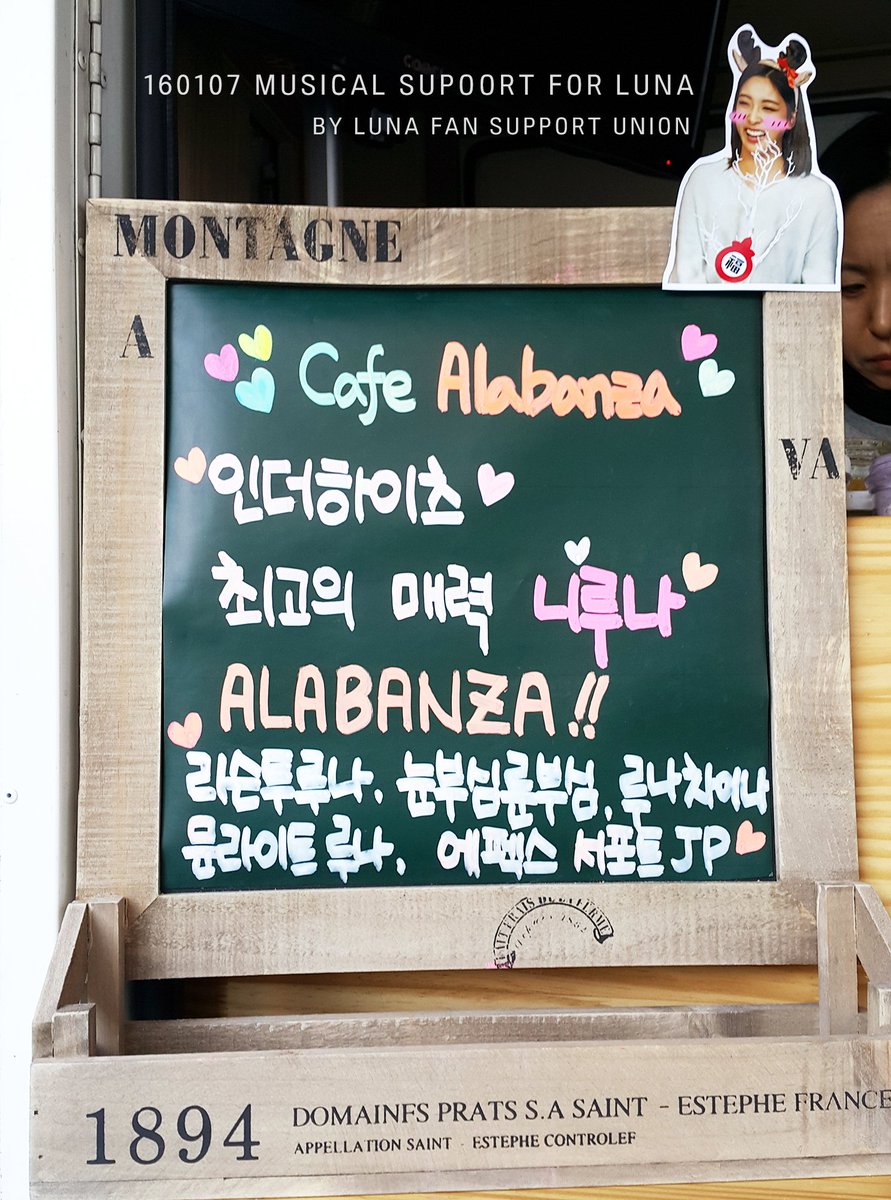 160107 MUSICAL SUPOORT FOR LUNA
BY LUNA FAN SUPPORT UNION
MONTAGNE
A
VA
Cafe Alabanza
인더하이츠
최고의 매력 니루나
ALABANZA!!
리슨투루나. 눞부심륜부심. 루나차이나
뮤라이트루나. 에펙스 서포트 JP
1894
DOMAINFS PRATS S.A SAINT - ESTEPHE FRANCE
APPELLATION SAINT ESTEPHE CONTROLEF